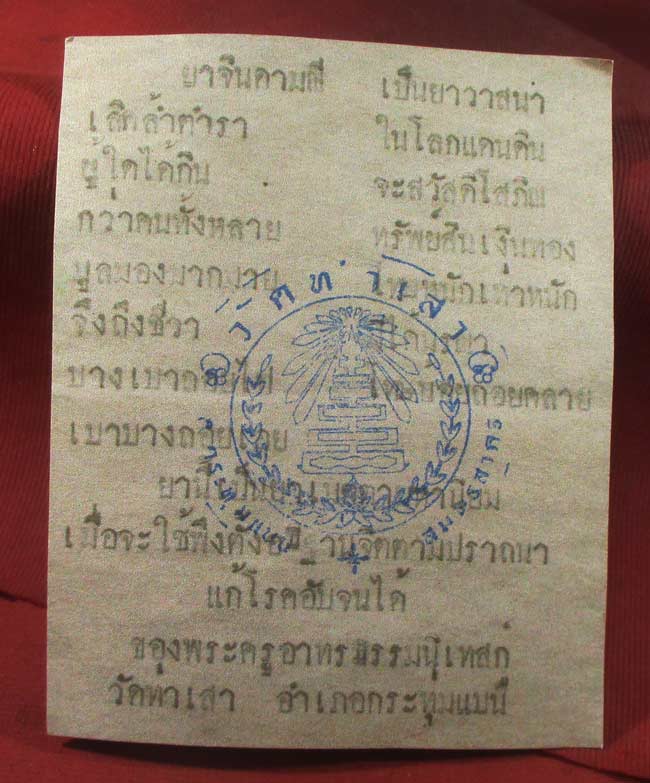 ยาจินดามณี เป็นยาวาสนา
เลิศล้ำตำรา ในโลกแดนดิน
ผู้ใดได้กิน จะสวัสดิโสภิณ
กว่าคนทั้งหลาย ทรัพย์สินเงินทอง
มูลมองมากมาย โทษหนักเท่าหนัก
จึงถึงชีวา ได้
บางเบา ถอยคลาย
เบาบางถอย
ยานี้เป็นยา นิยม
เมื่อจะใช้พึงตั้ง จิตตามปราถนา
แก้โรคอับจนได้
ของพระครูอาทรธรรมนิเทสก์
วัดทาเสา อำเภอกระทุมแบน
วัดท่าเสา
สมุทรสาคร